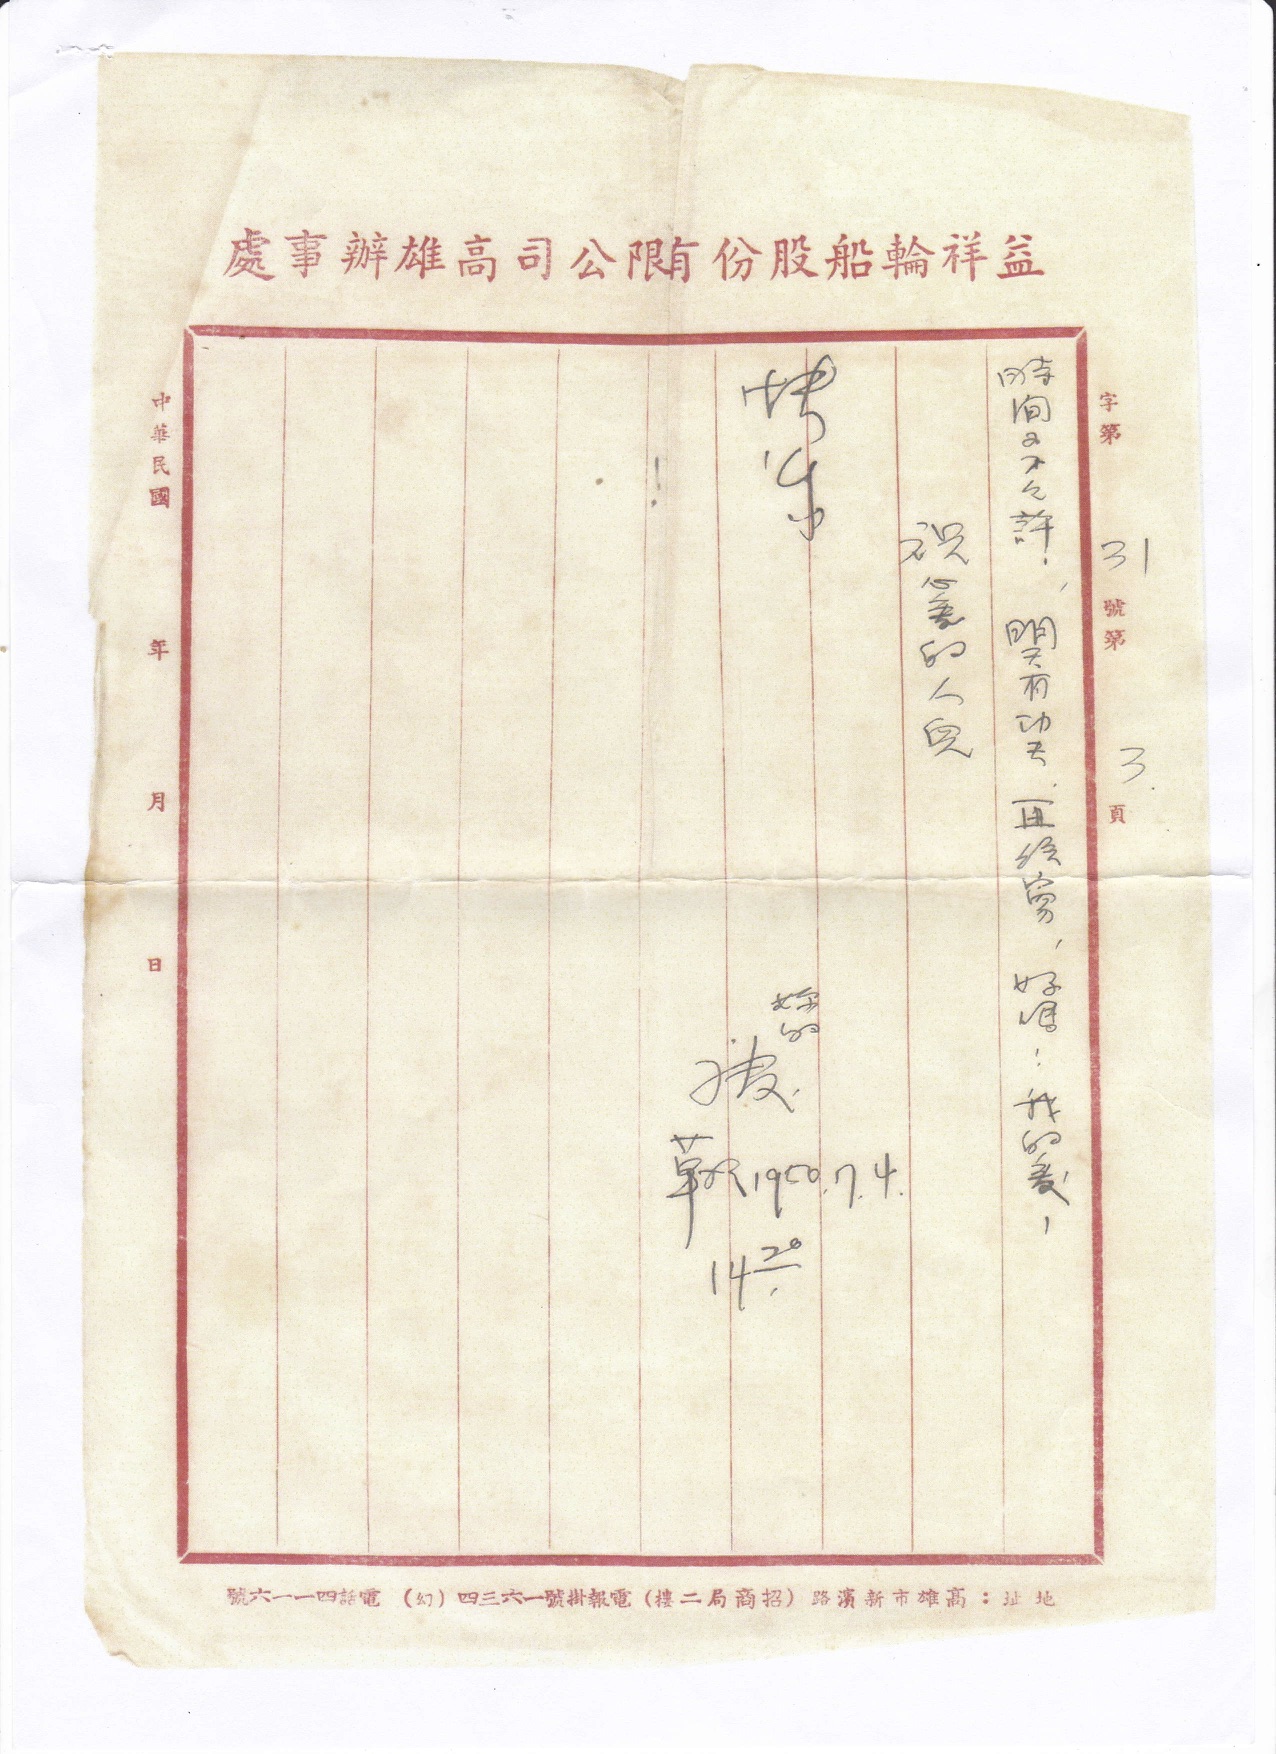 益祥輪船股份有限公司高雄辦事處
字第31號第3頁
時間又不允許！，明天有功夫、再給寫，好嗎！我的愛！
祝心愛的人兒
快樂
！
妳的
草於1950.7.4.
14 20
中華民國 年 月 日
地址：高雄市新濱路（招商局二樓）電報掛號一六三四（幻）電話四一一六號